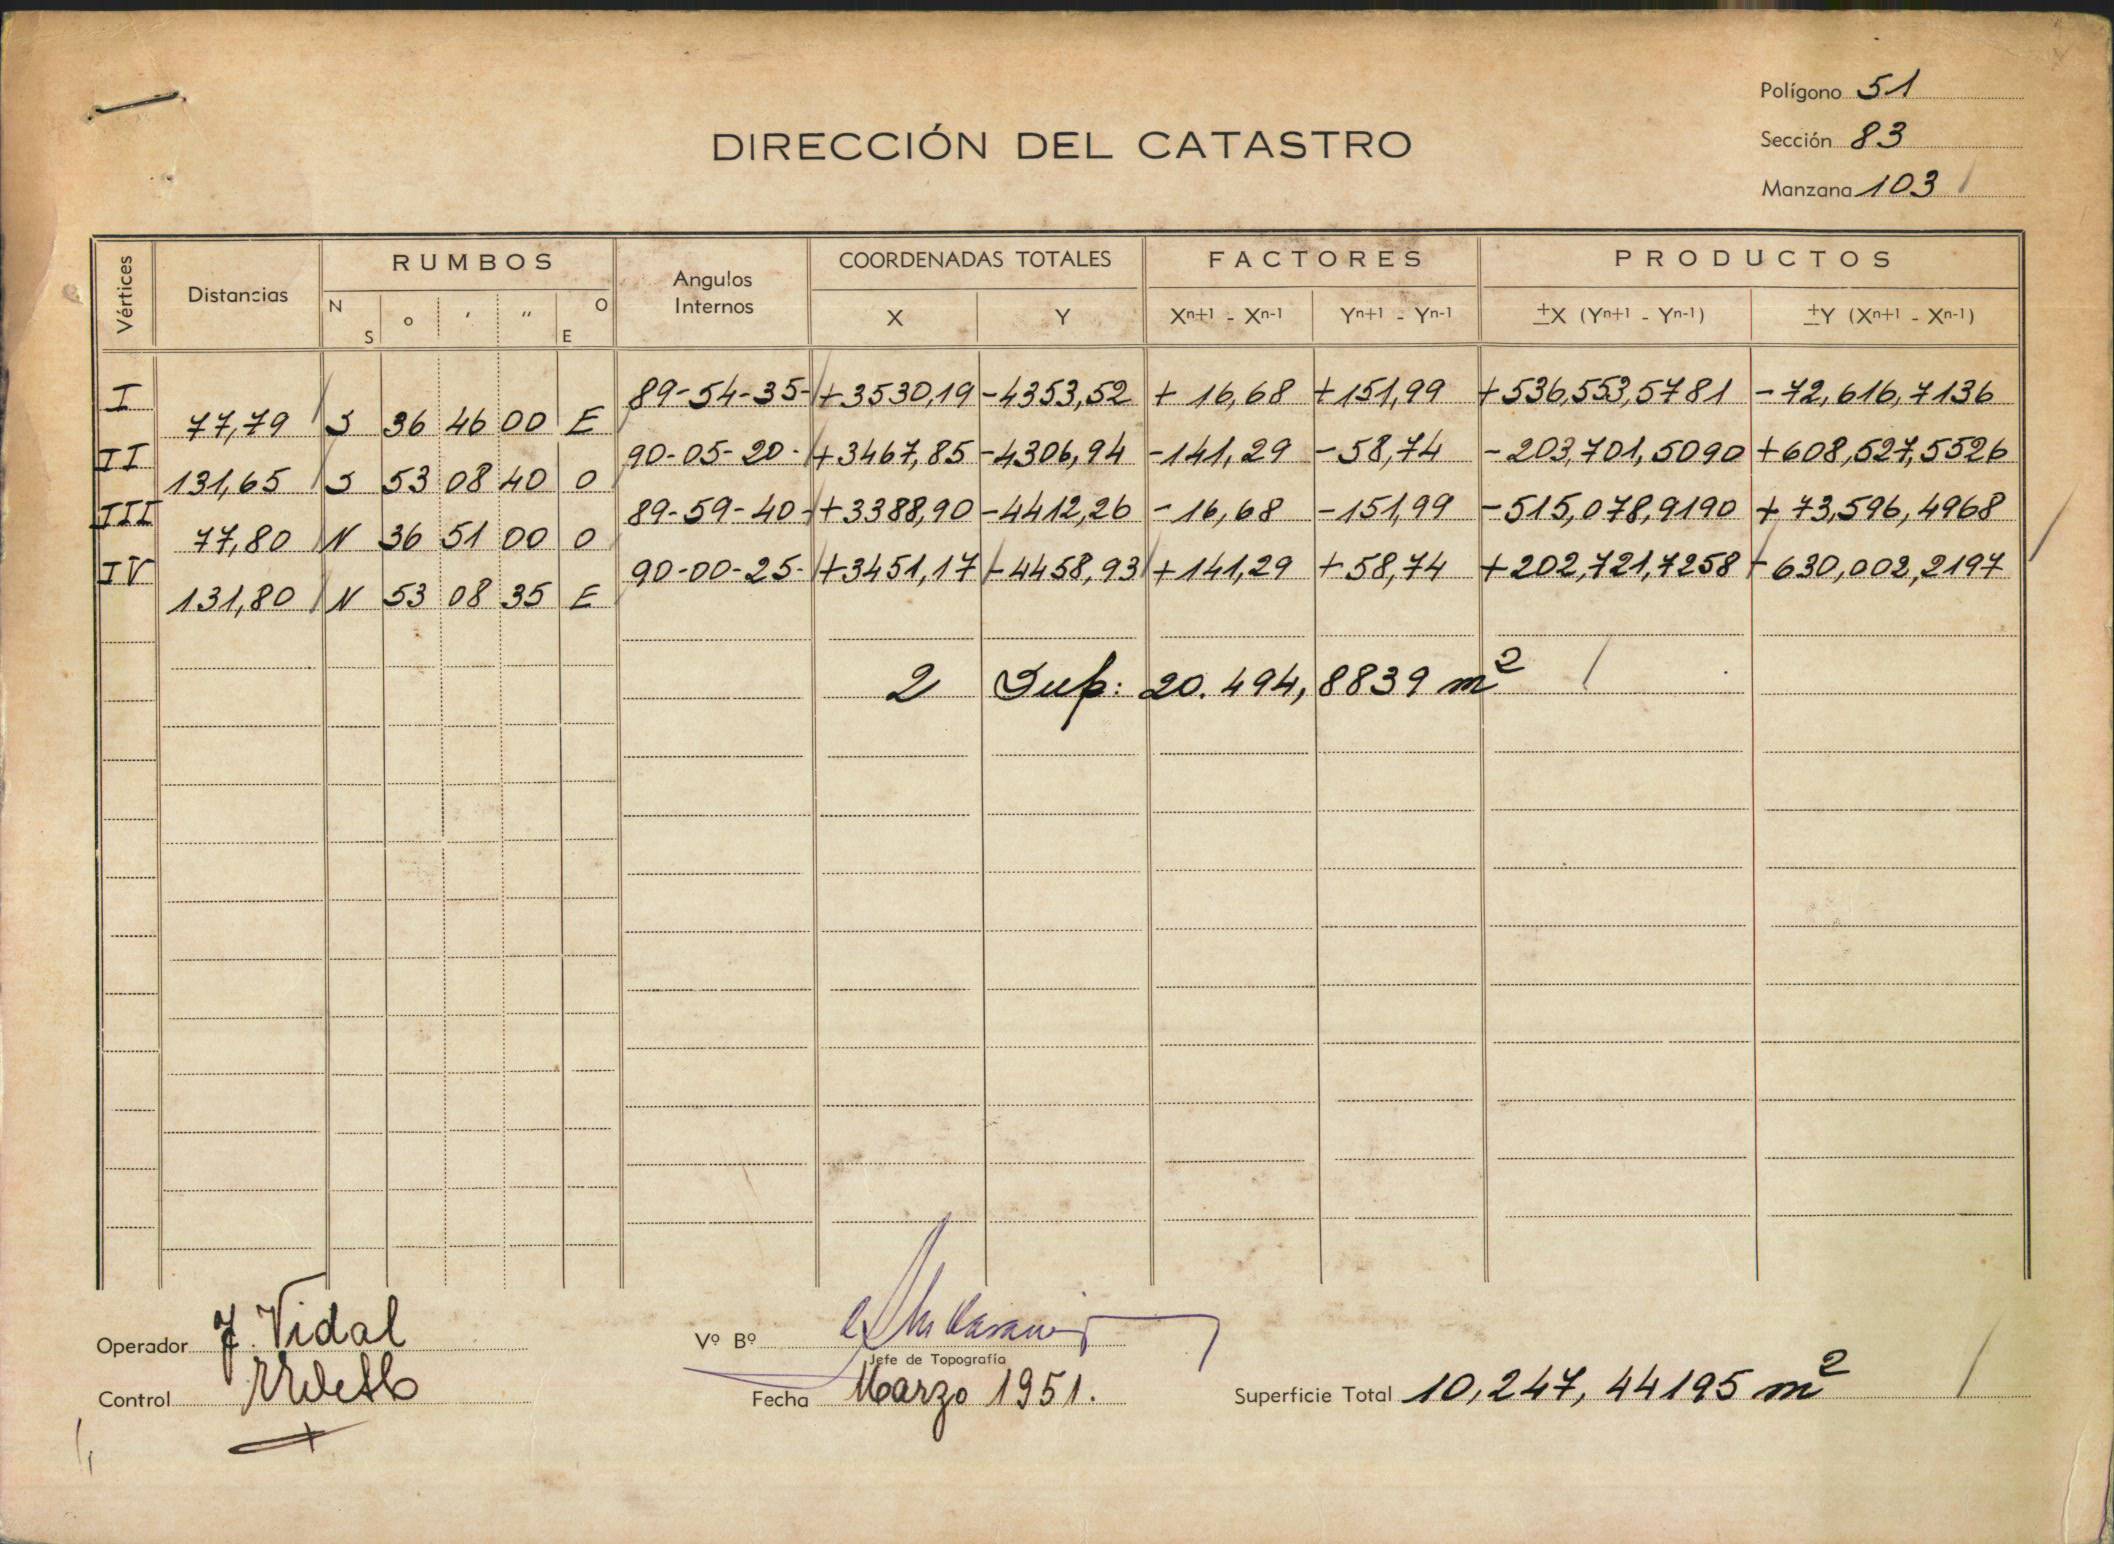 Polígono 51
DIRECCIÓN DEL CATASTRO
Sección 83
Manzana 103
Vértices Distancias RUMBOS Angulos Internos COORDENADAS TOTALES FACTORES PRODUCTOS
N S o ′ ″ O E X Y Xⁿ⁺¹ - Xⁿ⁻¹ Yⁿ⁺¹ - Yⁿ⁻¹ ±X (Yⁿ⁺¹ - Yⁿ⁻¹) ±Y (Xⁿ⁺¹ - Xⁿ⁻¹)
I 89-54-35- +3530,19 -4353,52 + 16,68 +151,99 +536,553,5781 -72,616,7136
77,79 S 36 46 00 E
II 90-05-20- +3467,85 -4306,94 -141,29 -58,74 -203,701,5090 +608,527,5526
131,65 S 53 08 40 O
III 89-59-40- +3388,90 -4412,26 -16,68 -151,99 -515,078,9190 + 73,596,4968
77,80 N 36 51 00 O
IV 90-00-25- +3451,17 -4458,93 +141,29 +58,74 +202,721,7258 -630,002,2197
131,80 N 53 08 35 E
2 Sup: 20.494,8839 m²
Operador J. Vidal
Vº Bº
Jefe de Topografía
Control
Fecha Marzo 1951.
Superficie Total 10,247,44195 m²